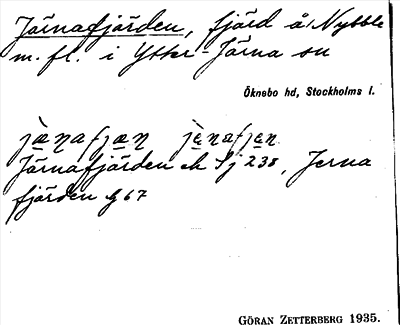 Järnafjärden, fjärd å Nybble
m. fl. i Ytter-Järna sn
Öknebo hd, Stockholms l.
Järnafjärden ek Sj 238, Jerna
fjärden g 67
GÖRAN ZETTERBERG 1935.